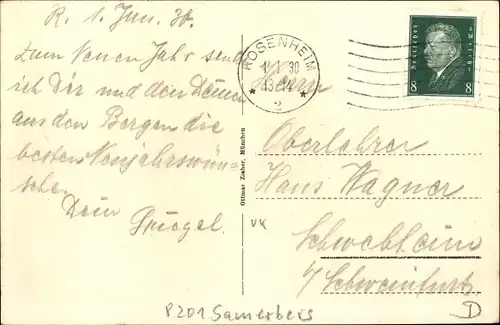 R. 1. Jan. 30.
Zum Neuen Jahr sende
ich Dir und den Deinen
aus den Bergen die
besten Neujahrswün-
sche.
Dein
ROSENHEIM
30
2
Deutsches Reich
8 8
Herrn
Oberlehrer
Hans Wagner
Schwebheim
b/Schweinfurt
Ottmar Zieher, München
VK
8201 Samerberg
D